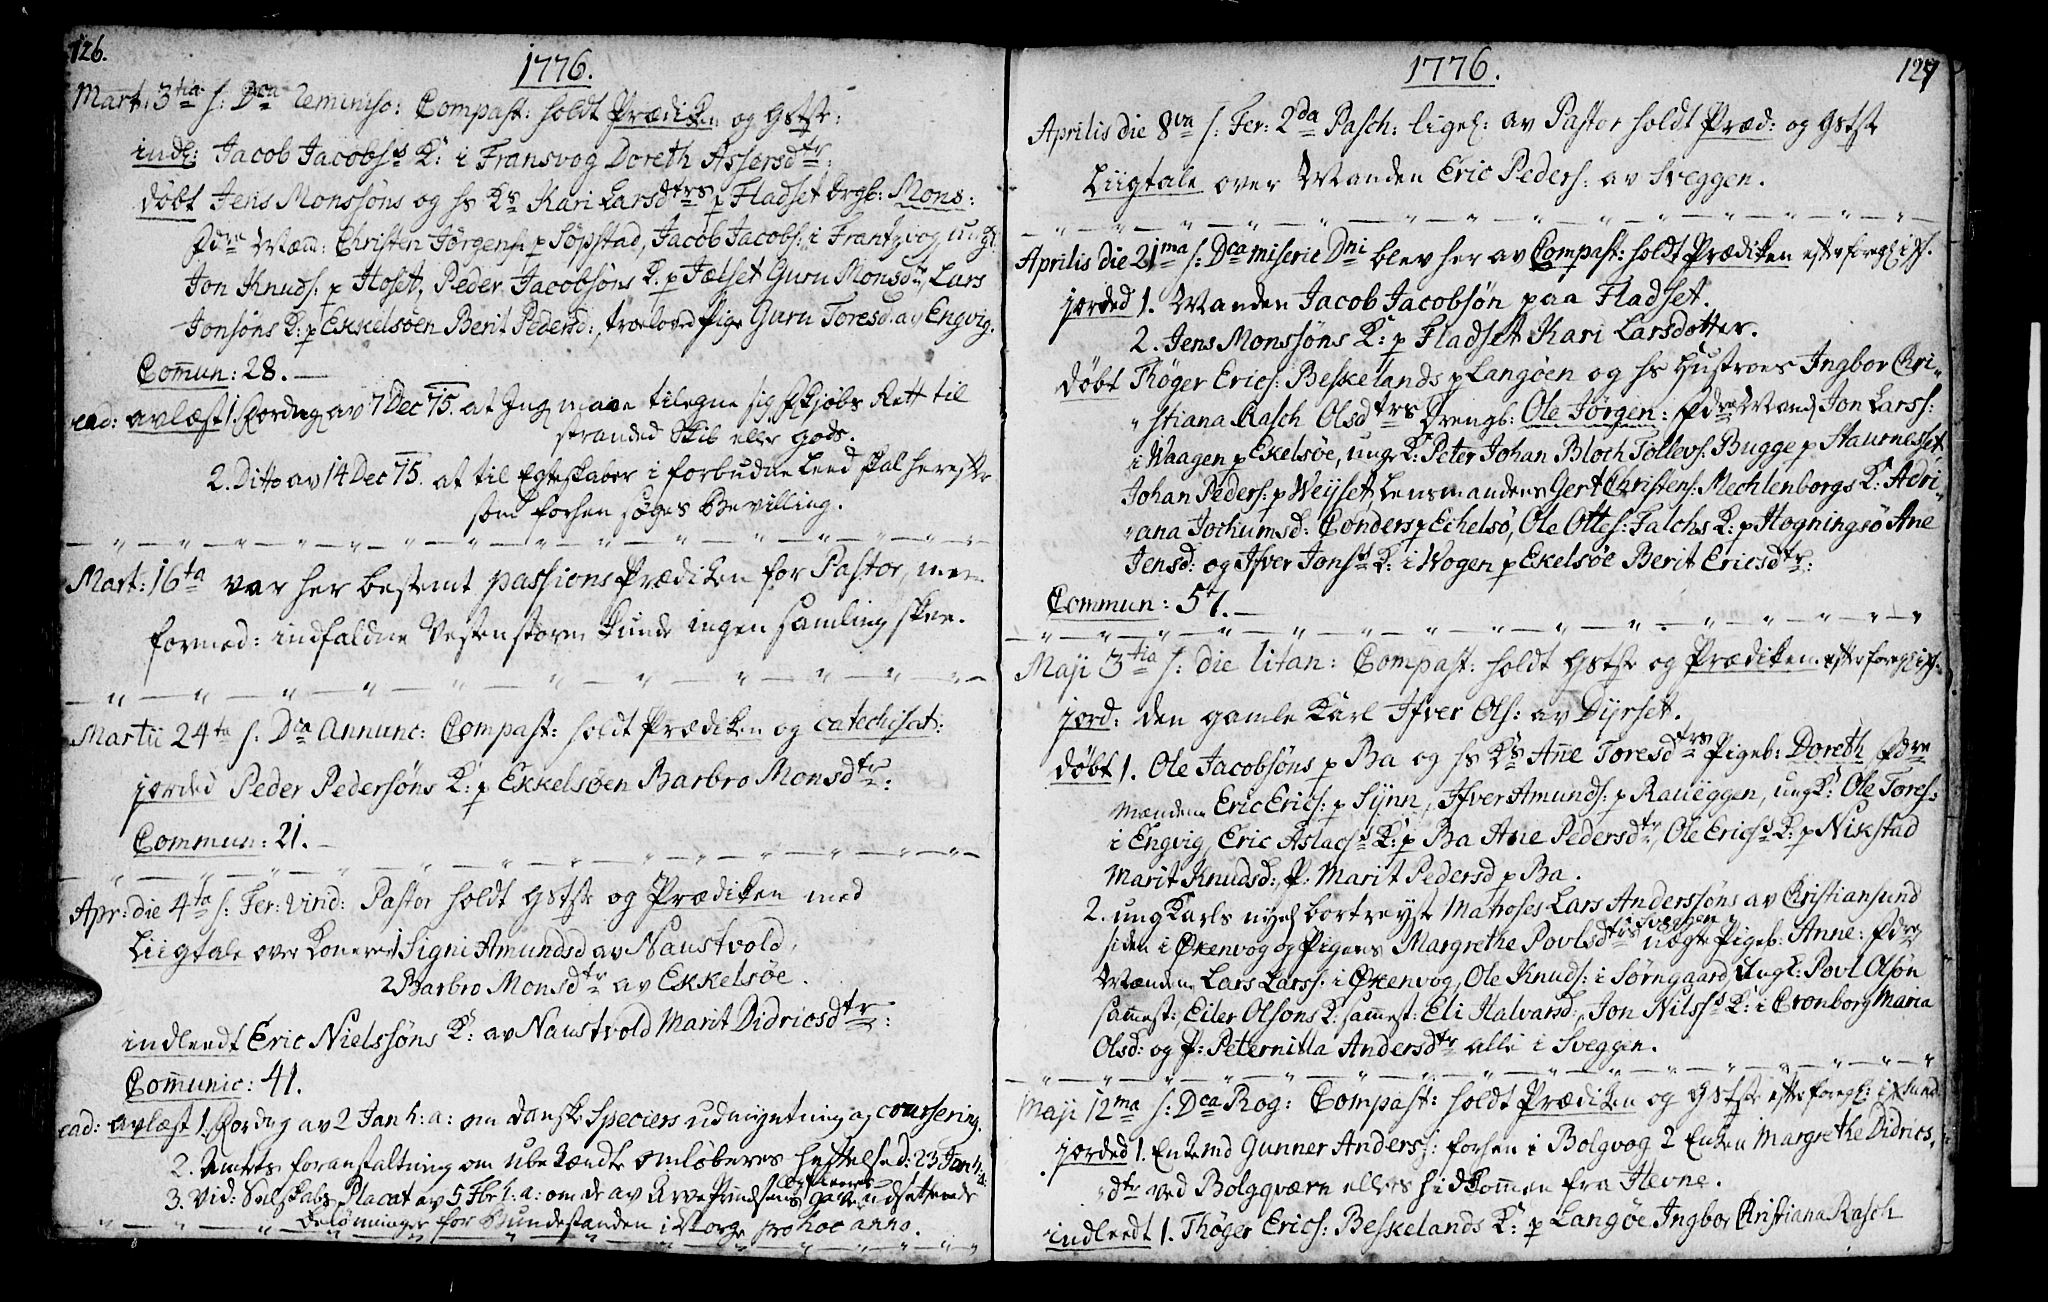 126.
1776.
Mart: 3tia s: Dca Reminisc: Compast: holdt Prædiken og Gstste:
indl: Jacob Jacobs:s K: i Fransvog Doreth Assersdtr:
døbt Jens Monssøns og hs Ks Kari Larsdtrs p Fladset drgb: Mons:
Fdre Mænd: Christen Jørgens: p Søpstad, Jacob Jacobs: i Frantzvog, ungk:
Jon Knuds: p Hoset, Peder Jacobsøns K: p Jælset Guru Monsdtr, Lars
Jonsøns K: p Ekkelsøen Berit Pedersd:, troloved Pige Guru Toresd: av Engvig.
Com̄un: 28.
ead: avlæst 1. Fordng av 7 Dec 75. at Ing maae tilegne sig Kjøbs Rett til
stranded Skib eller gods.
2. Dito av 14 Dec 75. at til Egteskaber i forbudne Leed skal herefter
som forhen søges Bevilling.
Mart: 16ta var her bestemt passions Prædiken for Pastor, men
formed: indfaldne Vestenstorm kunde ingen samling skee.
Martii 24ta s: Dca Annunc: Compast: holdt Prædiken og catechisat:
jorded Peder Pedersøns K: p Ekkelsøen Barbro Monsdtr:
Commun: 21.
Apr: die 4ta s: Fer: virid: Pastor holdt Gstste og Prædiken med
Liigtale over Konerne 1 Signi Amundsd av Naustvold,
2 Barbro Monsdtr av Ekkelsøe.
indleedt Eric Nielssøns K: av Naustvold Marit Didricsdtr:
Com̄unic: 41.
ead: avlæst 1. Fordng av 2 Jan h: a: om danske Speciers udmyntning og coursering.
2. Amtets foranstaltning om ubekændte omløberes heftelse d: 23 Jan h: a:
3. Vid: Selskabs Placat av 5 Fbr h: a: om de av Arve Prindsens gave udsettende
belønninger for Bondestanden i Norge pro hoc anno.
1776.
127
Aprilis die 8va s: Fer: 2da Pasch: ligel: av Pastor holdt Præd: og Gstste
Liigtale over Manden Eric Peders: av Sveggen.
Aprilis die 21ma s: Dca miseric Dni blev her av Compast: holdt Prædiken efter foregl: ...
jorded 1. Manden Jacob Jacobsøn paa Fladset.
2. Jens Monssøns K: p Fladset Kari Larsdotter.
døbt Thøger Erics: Beskelands p Langøen og hs Hustroes Ingbor Chri-
stiana Rasch Olsdtrs Drengb: Ole Jørgen: Fdre Mænd Jon Larss:
i Waagen p Ekelsøe, ungk: Peter Johan Bloch Tollevs: Bugge p Staurneset,
Johan Peders: p Weyset, Lensmandens Gert Christens: Mechlenborgs K: Adri-
ana Jochumsd: Conders p Echelsø, Ole Ottes: Falchs K: p Hogningsø Ane
Jensd: og Ifver Jons:s K: i Wogen p Ekelsøe Berit Ericsdtr:
Commun: 57.
Maji 3tia s: die litan: Compast: holdt Gstste og Prædiken efter foregl: ...
jord: den gamle Karl Ifver Ols: av Dyrset.
døbt 1. Ole Jacobsøns p Ba og hs Ks Ane Toresdtrs Pigeb: Doreth Fdre
Mændene Eric Erics: p Synn, Ifver Amunds: p Raueggen, ungk: Ole Tores:
i Engvig, Eric Aslacs:s K: p Ba Ane Pedersdtr, Ole Erics:s K: p Nikstad
Marit Knudsd:, P: Marit Pedersd p Ba.
2. ung Karls nyel: bortreyste Matroses Lars Anderssøns av Christiansund
siden i Økenvog og Pigens Margrethe Povlsdtrs i Sveggen uægte Pigeb: Anne: Fdre
Mændene Lars Larss: i Økenvog, Ole Knuds: i Sørngaard, Ungk: Povl Olsøn
sam̄est: Eiler Olsøns K: sam̄est: Eli Halvarsd:, Jon Nilss:s K: i Cronborg Maria
Olsd: og P: Peternilla Andersdtr alle i Sveggen.
Maji 12ma s: Dca Rog: Compast: holdt Prædiken og Gstste efter foregl: ...
jorded 1. Enkemd Gunner Anderss: forhen i Bolgvog 2 Enken Margrethe Didrics-
dtr ved Bolgqværn ellers hidkommen fra Hevne.
indleedt 1. Thøger Erics: Beskelands K: p Langøe Ingbor Christiana Rasch